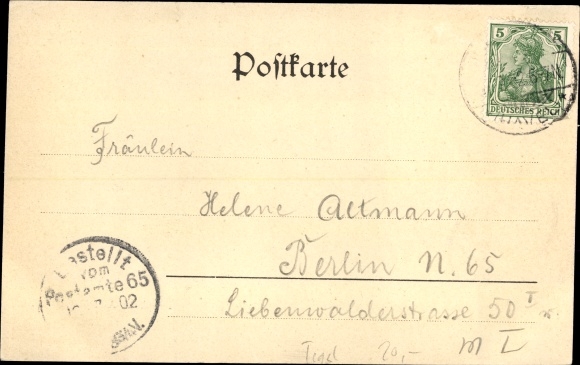 5 5
DEUTSCHES REICH
Postkarte
Fräulein
Helene Altmann
Berlin N. 65
Liebenwalderstrasse 50 I
Bestellt
vom
Postamte 65
02
20,- M L